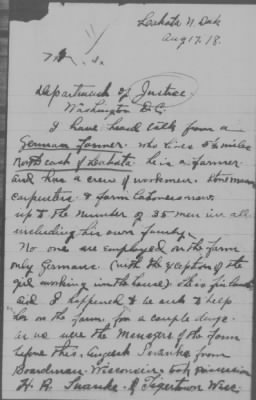 Lakota N Dak
Aug 17. 18.
Department of Justice
Washington D.C.
I have heard talk from a
German farmer. who lives 5½ miles
North east of Lakota he is a farmer
and has a crew of workmen.
carpenters & farm laborers now.
up to the number of 35 men in all
including his own family.
No one are employed on the farm
only Germans. (with the exception of the
girl working in the house) She is
and I happened to be ask to help
her on the farm for a couple days.
as we were the Managers of the farm
before this. August Suanke from
Boardman. Wisconsin. took possession
H. R. Suanke. of Tigertown Wisc.